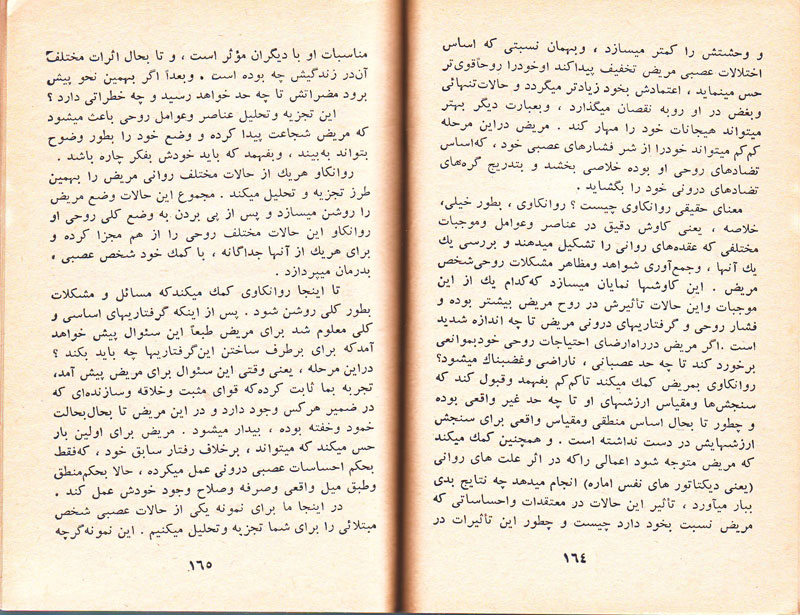 و وحشتش را کمتر میسازد ، وبهمان نسبتی که اساس
اختلالات عصبی مریض تخفیف پیداکند اوخودرا روحاًقوی‌تر
حس مینماید ، اعتمادش بخود زیادتر میگردد و حالات‌تنهائی
وبغض در او روبه نقصان میگذارد ، وبعبارت دیگر بهتر
میتواند هیجانات خود را مهار کند . مریض دراین مرحله
کم‌کم میتواند خودرا از شر فشارهای عصبی خود ، که‌اساس
تضادهای روحی او بوده خلاصی بخشد و بتدریج گره‌های
تضادهای درونی خود را بگشاید .
معنای حقیقی روانکاوی چیست ؟ روانکاوی ، بطور خیلی،
خلاصه ، یعنی کاوش دقیق در عناصر وعوامل وموجبات
مختلفی که عقده‌های روانی را تشکیل میدهند و بررسی یك
یك آنها ، وجمع‌آوری شواهد ومظاهر مشکلات روحی‌شخص
مریض . این کاوشها نمایان میسازد که‌کدام یك از این
موجبات واین حالات تأثیرش در روح مریض بیشتر بوده و
فشار روحی و گرفتاریهای درونی مریض تا چه اندازه شدید
است .اگر مریض درراه‌ارضای احتیاجات روحی خودبموانعی
برخورد کند تا چه حد عصبانی ، ناراضی وغضبناك میشود؟
روانکاوی بمریض کمك میکند تاکم‌کم بفهمد وقبول کند که
سنجش‌ها ومقیاس ارزشهای او تا چه حد غیر واقعی بوده
و چطور تا بحال اساس منطقی ومقیاس واقعی برای سنجش
ارزشهایش در دست نداشته است . و همچنین کمك میکند
که مریض متوجه شود اعمالی راکه در اثر علت های روانی
(یعنی دیکتاتور های نفس اماره) انجام میدهد چه نتایج بدی
ببار میآورد ، تأثیر این حالات در معتقدات واحساساتی که
مریض نسبت بخود دارد چیست و چطور این تأثیرات در
۱۶۴
مناسبات او با دیگران مؤثر است ، و تا بحال اثرات مختلف
آن‌در زندگیش چه بوده است . وبعداً اگر بهمین نحو پیش
برود مضراتش تا چه حد خواهد رسید و چه خطراتی دارد ؟
این تجزیه و تحلیل عناصر وعوامل روحی باعث میشود
که مریض شجاعت پیدا کرده و وضع خود را بطور وضوح
بتواند به‌بیند ، وبفهمد که باید خودش بفکر چاره باشد .
روانکاو هریك از حالات مختلف روانی مریض را بهمین
طرز تجزیه و تحلیل میکند . مجموع این حالات وضع مریض
را روشن میسازد و پس از پی بردن به وضع کلی روحی او
روانکاو این حالات مختلف روحی را از هم مجزا کرده و
برای هریك از آنها جداگانه ، با کمك خود شخص عصبی ،
بدرمان میپردازد .
تا اینجا روانکاوی کمك میکندکه مسائل و مشکلات
بطور کلی روشن شود . پس از اینکه گرفتاریهای اساسی و
کلی معلوم شد برای مریض طبعاً این سئوال پیش خواهد
آمدکه برای برطرف ساختن این‌گرفتاریها چه باید بکند ؟
دراین مرحله ، یعنی وقتی این سئوال برای مریض پیش آمد،
تجربه بما ثابت کرده‌که قوای مثبت وخلاقه وسازنده‌ای که
در ضمیر هرکس وجود دارد و در این مریض تا بحال‌بحالت
خمود وخفته بوده ، بیدار میشود . مریض برای اولین بار
حس میکند که میتواند ، برخلاف رفتار سابق خود ، که‌فقط
بحکم احساسات عصبی درونی عمل میکرده ، حالا بحکم‌منطق
وطبق میل واقعی وصرفه وصلاح وجود خودش عمل کند .
در اینجا ما برای نمونه یکی از حالات عصبی شخص
مبتلائی را برای شما تجزیه وتحلیل میکنیم . این نمونه‌گرچه
۱۶۵